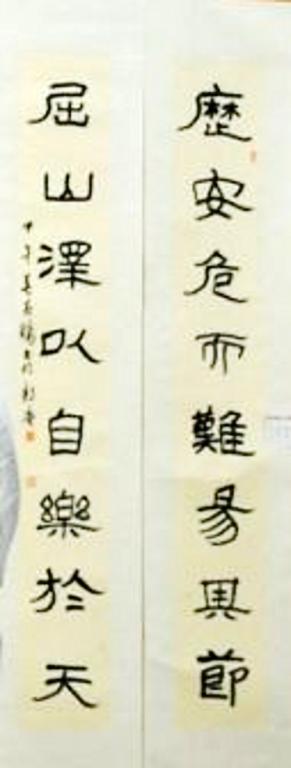 歷安危而難易其節
居山澤以自樂於天
甲午